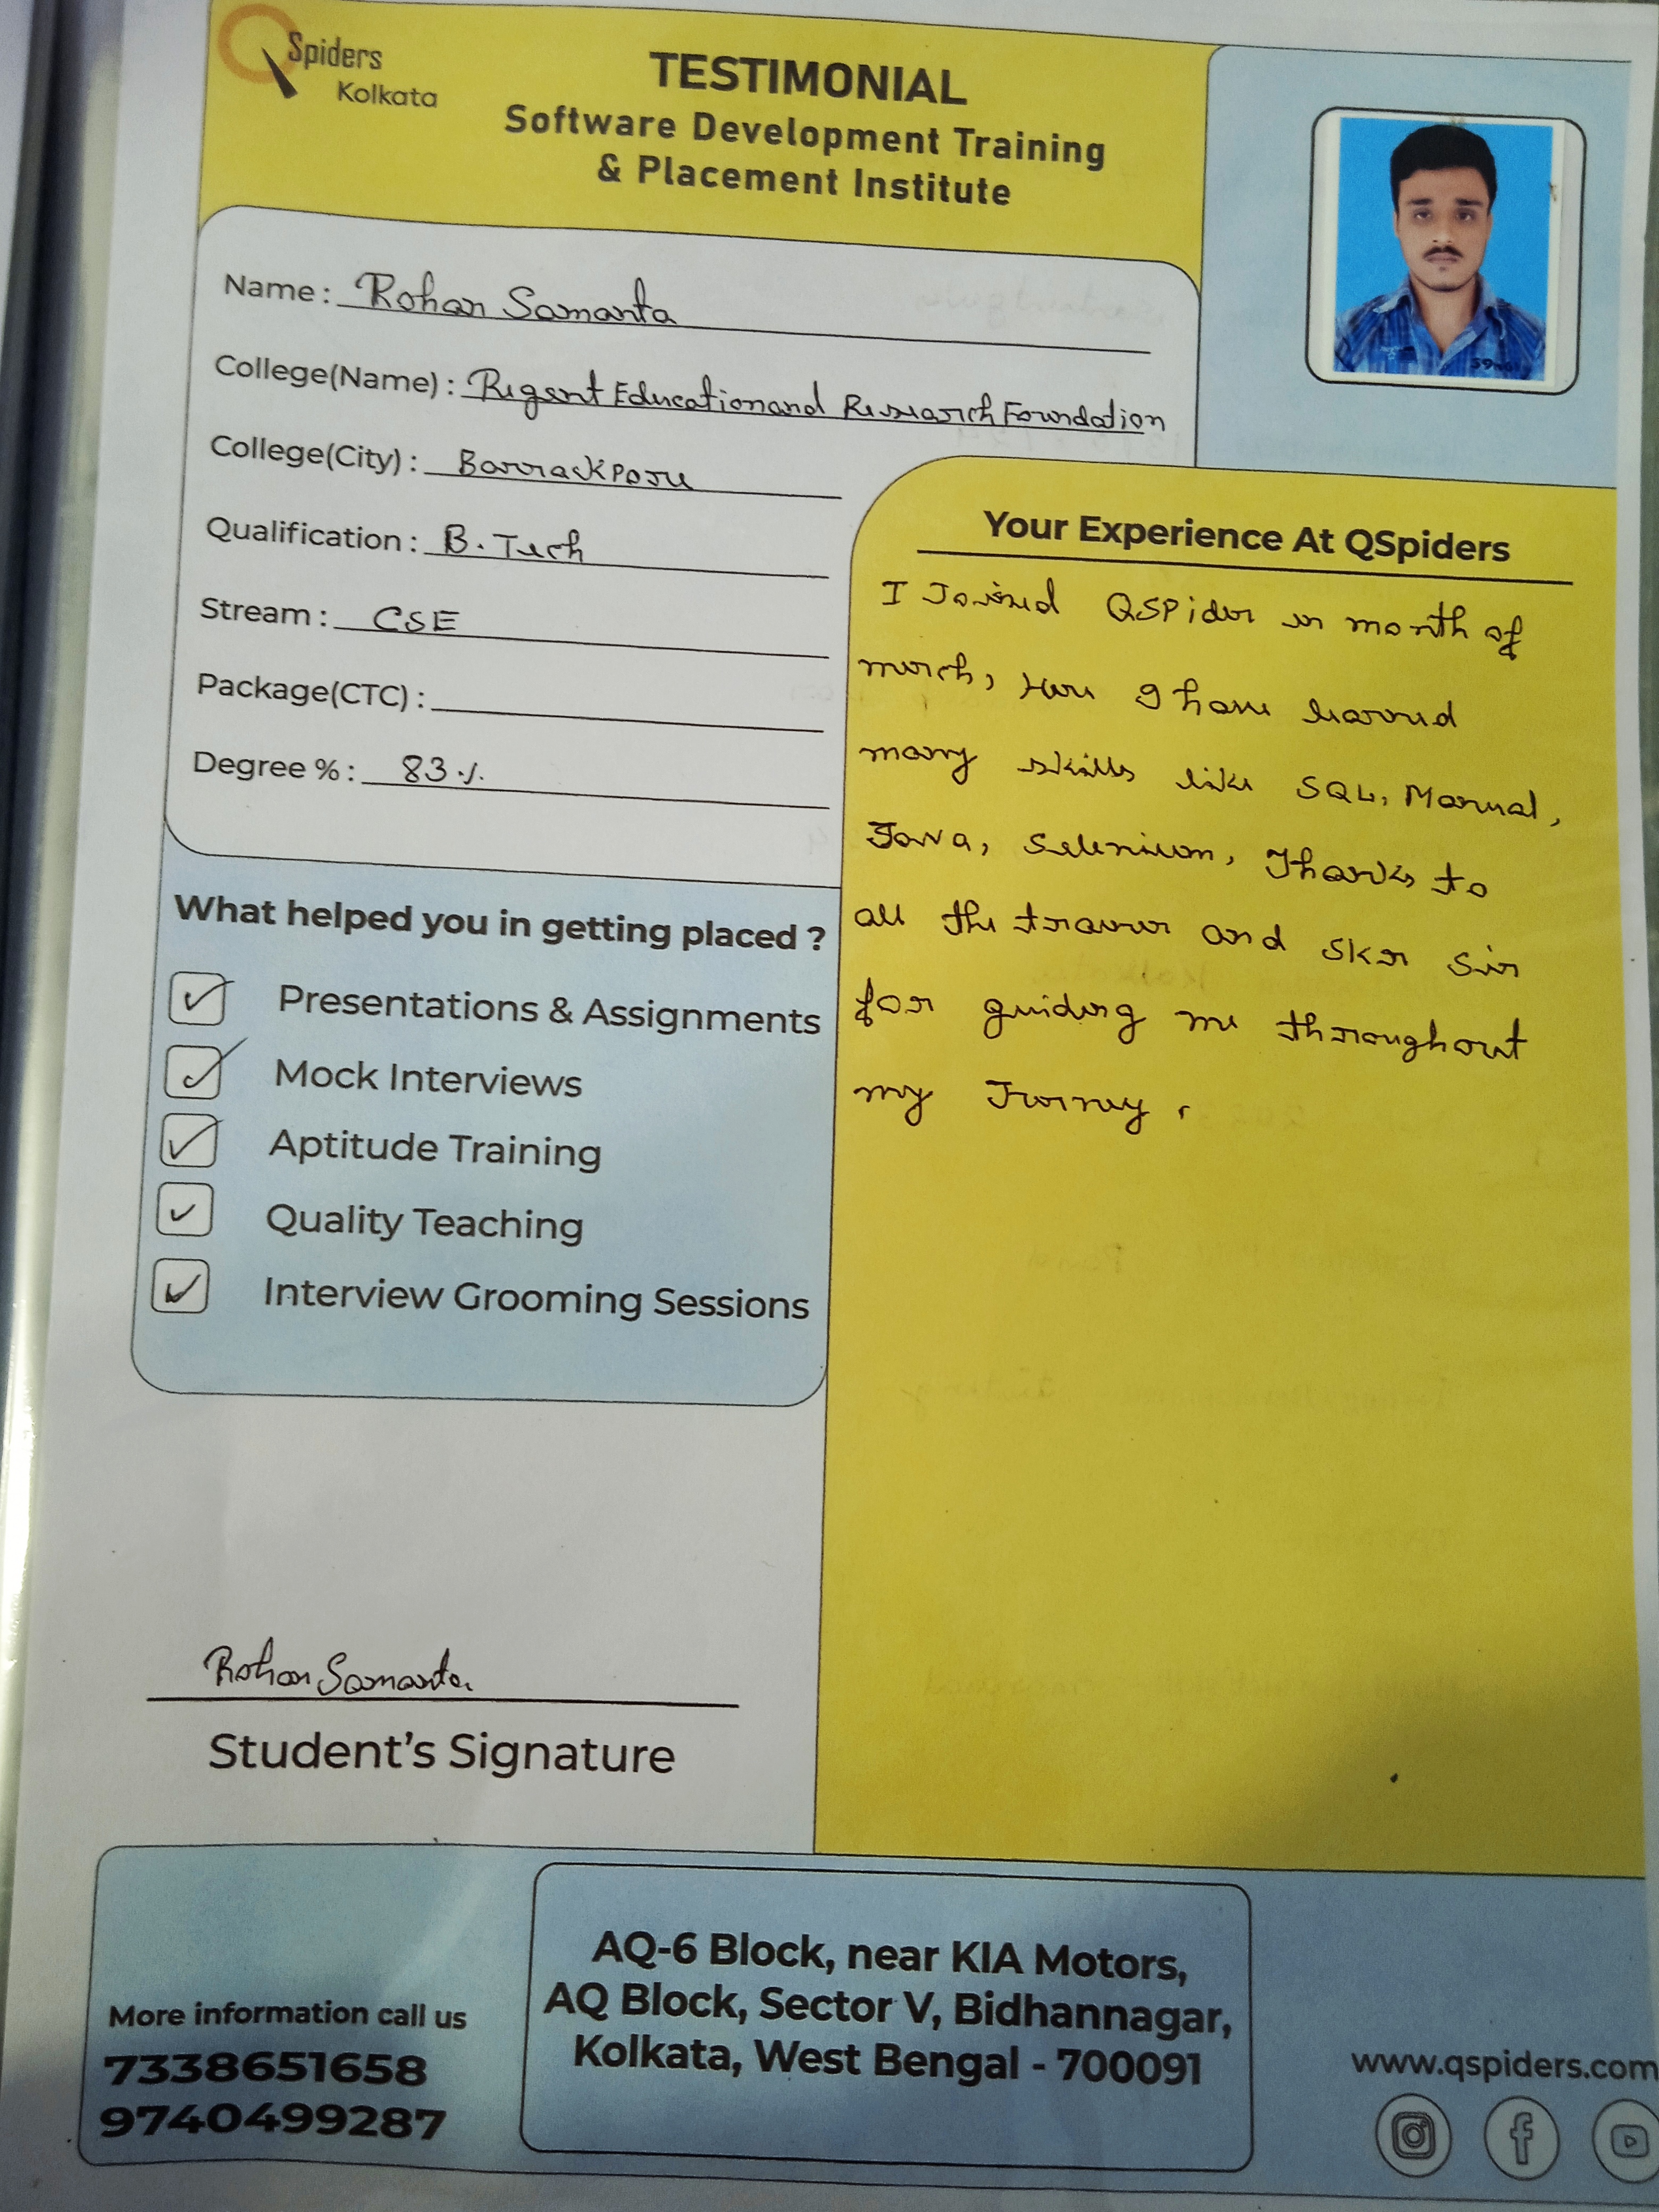 Spiders
Kolkata
TESTIMONIAL
Software Development Training
& Placement Institute
Name : Rohan Samanta
College(Name) : Regent Education and Research Foundation
College(City) : Barrackpore
Qualification : B. Tech
Stream : CSE
Package(CTC) :
Degree % : 83%
What helped you in getting placed ?
Presentations & Assignments
Mock Interviews
Aptitude Training
Quality Teaching
Interview Grooming Sessions
Your Experience At QSpiders
I Joined QSPider in month of
march, Here I have learned
many skills like SQL, Manual,
Java, Selenium, Thanks to
all the trainer and SKR Sir
for guiding me throughout
my Jurney.
Rohan Samanta
Student's Signature
More information call us
7338651658
9740499287
AQ-6 Block, near KIA Motors,
AQ Block, Sector V, Bidhannagar,
Kolkata, West Bengal - 700091
www.qspiders.com